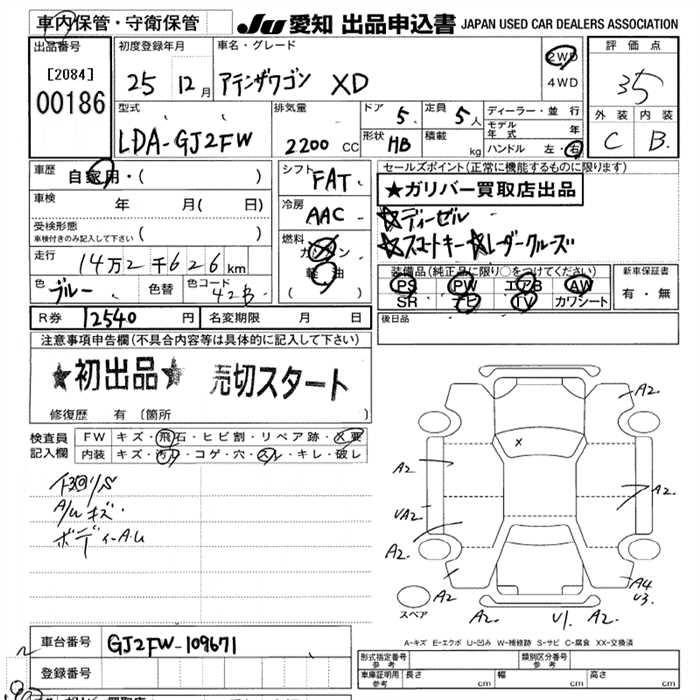 車内保管・守衛保管
JU 愛知 出品申込書 JAPAN USED CAR DEALERS ASSOCIATION
出品番号
[2084]
00186
初度登録年月
25 12月
車名・グレード
アテンザワゴン XD
2WD
4WD
評価点
3.5
外装 内装
C B
型式
LDA-GJ2FW
排気量
2200 CC
ドア 5
定員 5人
形状 HB
積載 kg
ディーラー・並行
モデル年式 年
ハンドル 左・右
車歴
自家用・( )
車検 年 月( 日)
受検形態
車検付きのみ記入して下さい ( )
走行 14万2千626km
色 ブルー
色替
色コード 42B
シフト FAT
冷房 AAC
燃料
ガソリン
軽油
( )
セールスポイント(正常に機能するものに限ります)
★ガリバー買取店出品
☆ディーゼル
☆スマートキー☆レーダークルーズ
装備品(純正品に限り○をつけてください)
PS PW エアB AW
SR ナビ TV カワシート
新車保証書
有・無
R券 12540円
名変期限 月 日
後日品
注意事項申告欄(不具合内容等は具体的に記入して下さい)
★初出品★ 売切スタート
修復歴 有 〔箇所 〕
検査員記入欄
FW キズ・飛石・ヒビ割・リペア跡・X要
内装 キズ・汚れ・コゲ・穴・スレ・キレ・破レ
A/Wキズ
ボディーA.U
A2
A2.
A2
A2.
UA2
A2.
A2
A2.
U1.
A2.
A4
U3.
スペア
A-キズ E-エクボ U-凹み W-補修跡 S-サビ C-腐食 XX-交換済
車台番号 GJ2FW-109671
登録番号
形式指定番号 参考
類別区分番号 参考
車庫証明用 参考
長さ cm
幅 cm
高さ cm